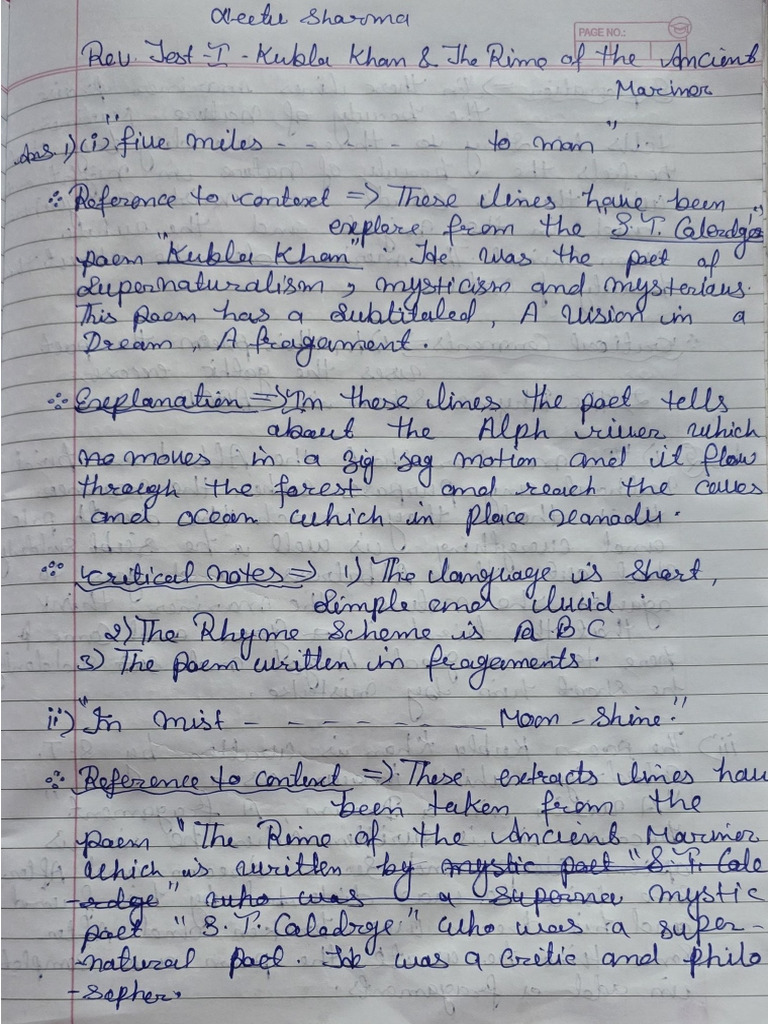 Neetu Sharma
PAGE NO.:
Rev. Test-I - Kubla Khan & The Rime of the Ancient
Mariner
Ans 1)(i) "five miles - - - - - - - to man".
Reference to context => These lines have been
explare from the "S.T. Caleridge's"
poem "Kubla Khan". He was the poet of
Supernaturalism, mysticism and mysterious.
This poem has a Subtitaled, A Vision in a
Dream, A fragament.
Explanation => In these lines the poet tells
about the Alph river which
no moves in a zig zag motion and it flow
through the forest and reach the caves
and ocean which in place Xeanadu.
Critical notes => 1) The language is Short,
Simple and lucid.
2) The Rhyme Scheme is A B C
3) The poem written in fragaments.
ii) "In mist - - - - - - Moon-Shine."
Reference to context => These extracts lines hav
been taken from the
poem "The Rime of the Ancient Mariner
which is written by mystic poet "S.T. Cale
-ridge" who was a superna mystic
poet "S.T. Caladrge" who was a super-
-natural poet. He was a critic and philo
-sopher.